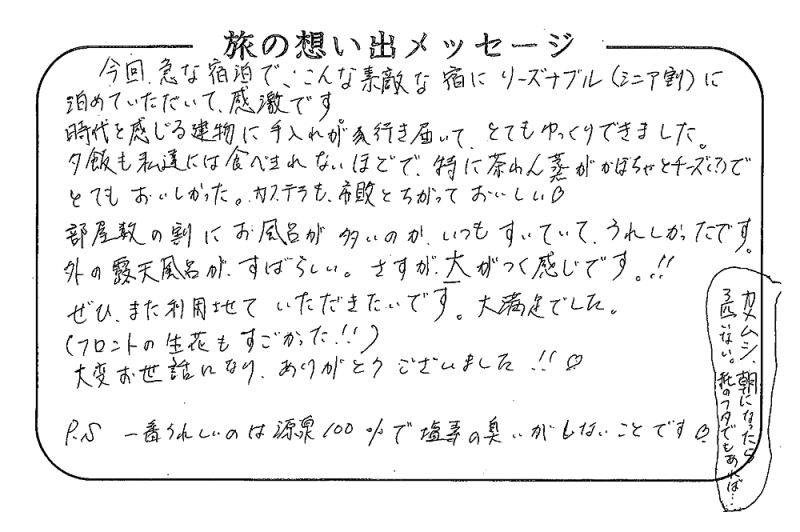 旅の想い出メッセージ
今回、急な宿泊で、こんな素敵な宿にリーズナブル(シニア割)に
泊めていただいて、感激です
時代を感じる建物に手入れが行き届いて、とてもゆっくりできました。
夕飯も私達には食べきれないほどで、特に茶わん蒸がかぼちゃとチーズ(?)で
とてもおいしかった。カステラも、市販とちがっておいしい♡
部屋数の割にお風呂が多いのが、いつもすいていて、うれしかったです。
外の露天風呂が、すばらしい。さすが、大がつく感じです。!!
ぜひ、また利用させていただきたいです。大満足でした。
(フロントの生花もすごかった!!)
大変お世話になり、ありがとうございました!!♡
P.S 一番うれしいのは源泉100%で塩素の臭いがしないことです♡
カメムシ、朝になったら
3匹いない。私のフタでもあれば…